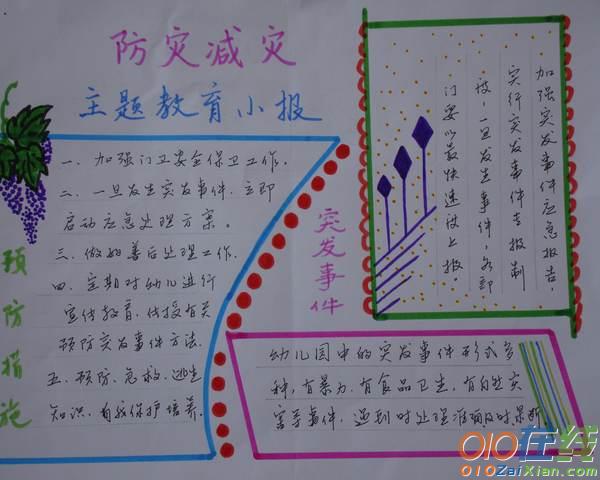 防灾减灾
主题教育小报
预防措施
一、加强门卫安全保卫工作。
二、一旦发生突发事件，立即
启动应急处理方案。
三、做好善后处理工作.
四、定期对幼儿进行
宣传教育，传授有关
预防突发事件方法.
五、预防、急救、逃生
知识、自我保护培养.
突发事件
加强突发事件应急报告，
实行突发事件专报制
度，一旦发生事件，各部
门要以最快速度上报.
幼儿园中的突发事件形式多
种，有暴力，有食品卫生，有自然灾
害等事件，遇到时处理准确及时果断
010在线
010ZaiXian.com